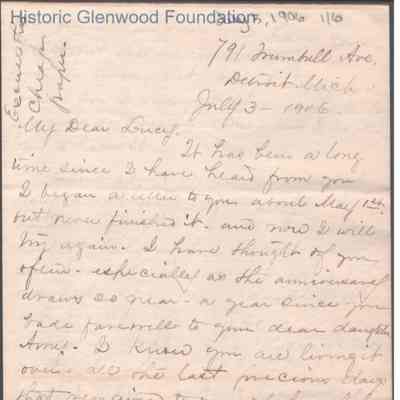 Historic Glenwood Foundation
July 3, 1906 1/6
Excuse this
Cheap
paper.
791 Trumbull Ave.
Detroit Mich.
July 3 - 1906.
My Dear Lucy.
It has been a long
time since I have heard from you
I began a letter to you about May 1st.
but never finished it. and now I will
try again. I have thought of you
often - especially as the anniversary
draws so near - a year since you
bade farewell to your dear daughter
I know you are living it
over all the last precious days
that remained to